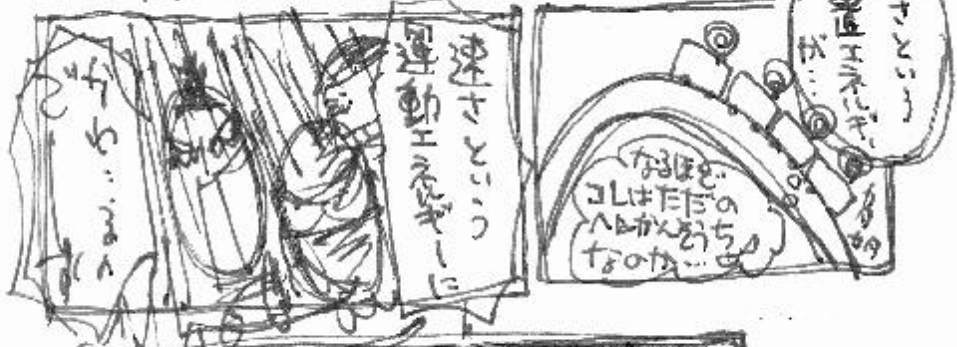 さという
置エネルギー
が…
なるほど
コレはただの
へんかんそうち
なのか…
速さという
運動エネルギーに
かわ…るっ